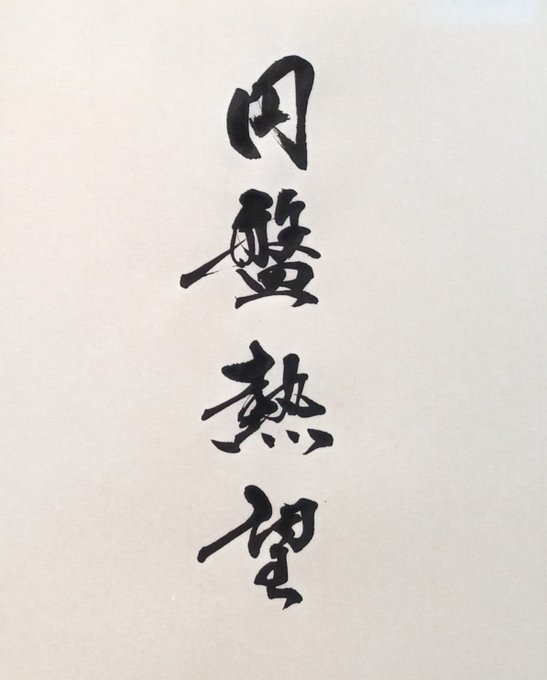 円盤熱望